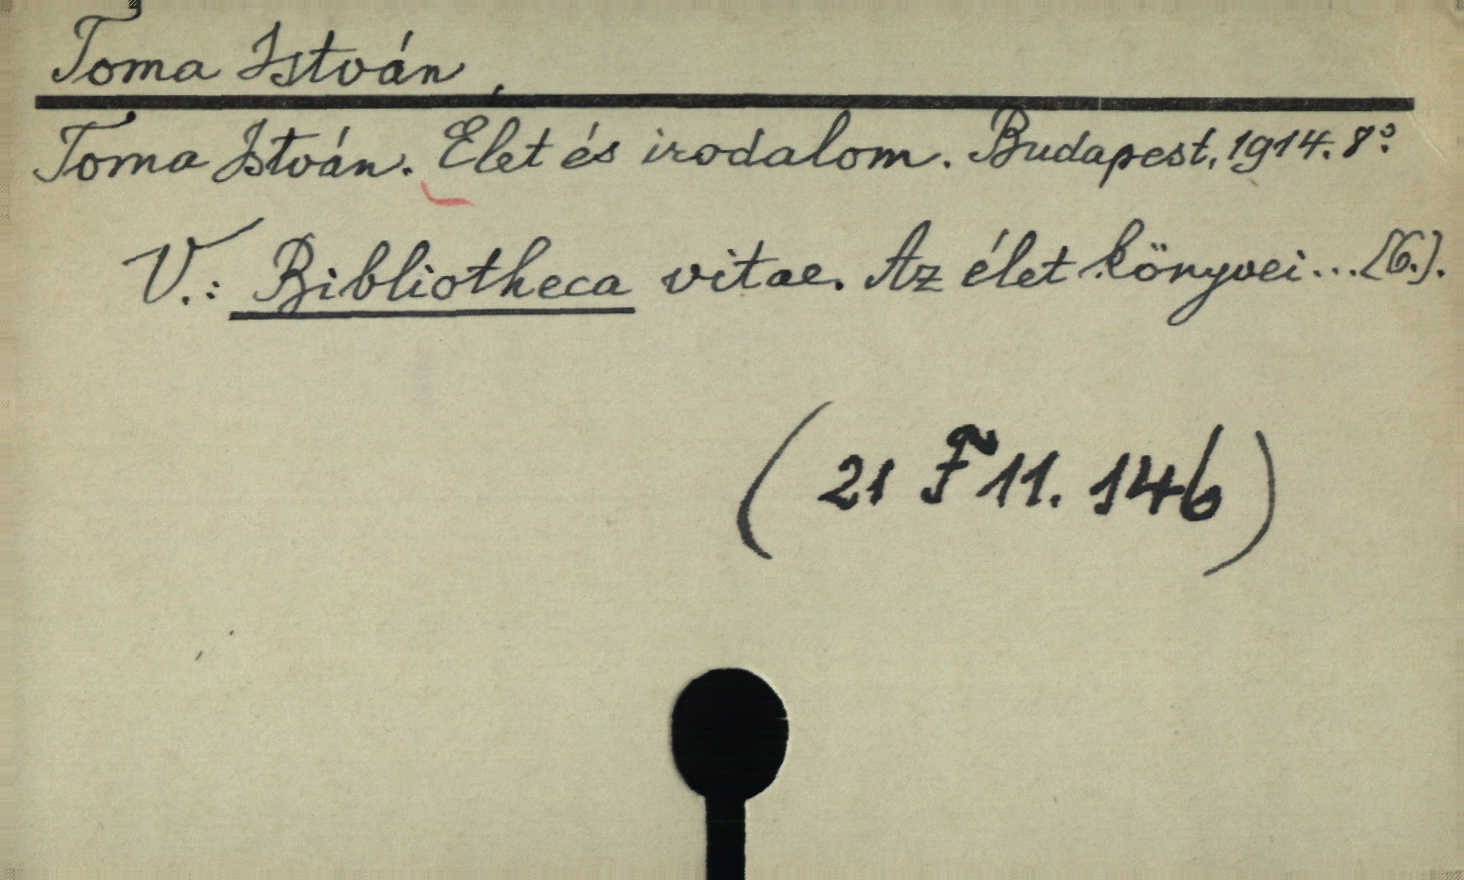 Toma István
Toma István. Élet és irodalom. Budapest, 1914. 8°.
V.: Bibliotheca vitae. Az élet könyvei... [6.].
(21 F 11. 146)